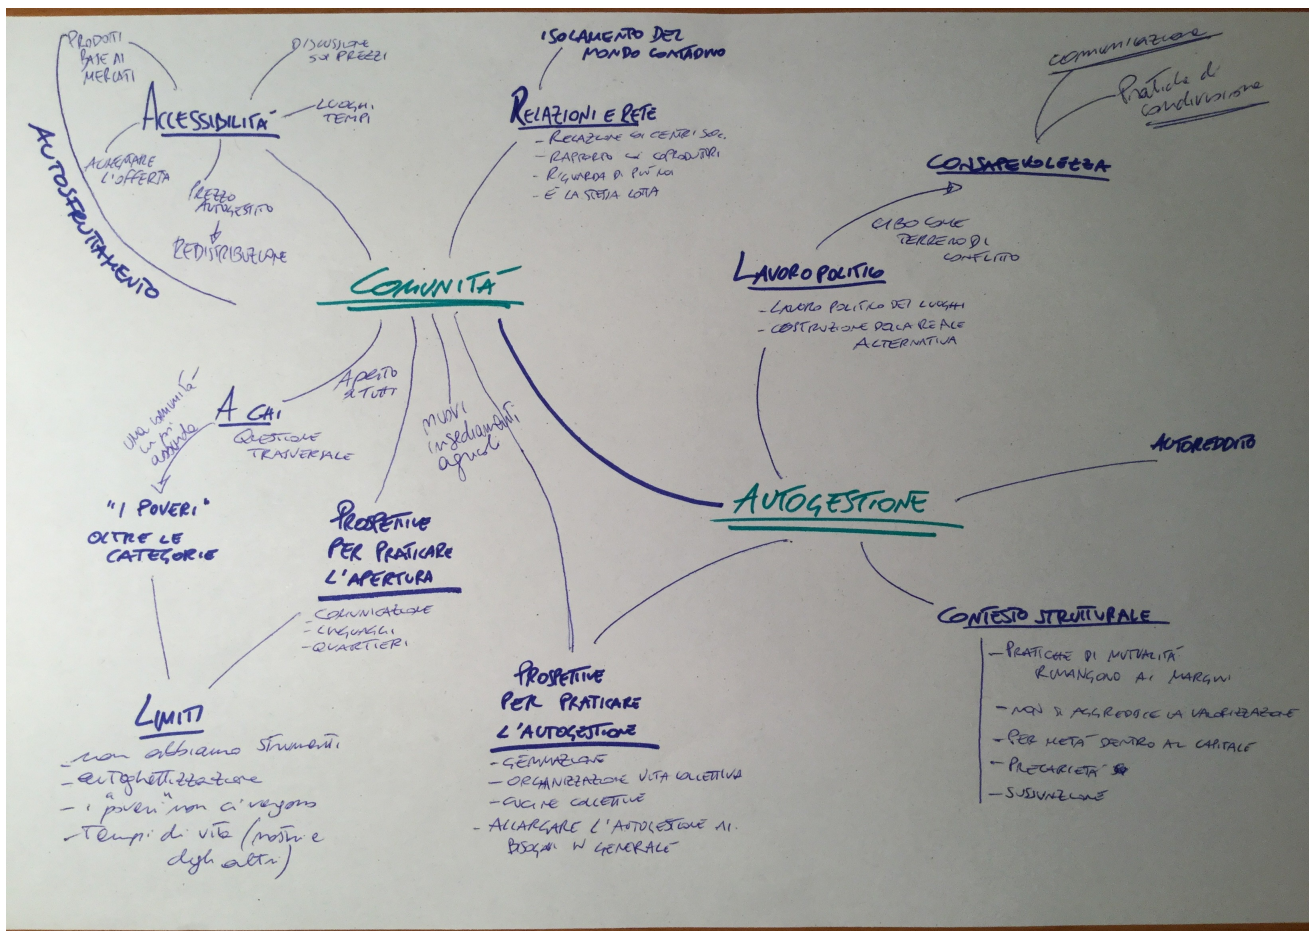 PRODOTTI
BASE AI
MERCATI
DISCUSSIONE
SUI PREZZI
ACCESSIBILITÀ
LUOGHI
TEMPI
AUMENTARE
L'OFFERTA
PREZZO
AUTOGESTITO
REDISTRIBUZIONE
AUTOSFRUTTAMENTO
ISOLAMENTO DEL
MONDO CONTADINO
RELAZIONI E RETE
- RELAZIONE CON CENTRI SOC.
- RAPPORTO CON COPRODUTTORI
- RIGUARDA DI PIÙ NOI
- È LA STESSA LOTTA
COMUNICAZIONE
Pratiche di
condivisione
CONSAPEVOLEZZA
CIBO COME
TERRENO DI
CONFLITTO
LAVORO POLITICO
- LAVORO POLITICO DEI LUOGHI
- COSTRUZIONE DELLA REALE
ALTERNATIVA
COMUNITÀ
APERTO
A TUTTI
A CHI
QUESTIONE
TRASVERSALE
una comunità
"I POVERI"
OLTRE LE
CATEGORIE
nuovi
insediamenti
agricoli
PROSPETTIVE
PER PRATICARE
L'APERTURA
- COMUNICAZIONE
- LINGUAGGI
- QUARTIERI
LIMITI
- non abbiamo strumenti
- autoghettizzazione
- i "poveri" non ci vengono
- Tempi di vita (nostri e
degli altri)
AUTOGESTIONE
AUTOREDDITO
PROSPETTIVE
PER PRATICARE
L'AUTOGESTIONE
- GEMMAZIONE
- ORGANIZZAZIONE VITA COLLETTIVA
- CUCINE COLLETTIVE
- ALLARGARE L'AUTOGESTIONE AI
BISOGNI IN GENERALE
CONTESTO STRUTTURALE
- PRATICHE DI MUTUALITÀ
RIMANGONO AI MARGINI
- NON SI AGGREDISCE LA VALORIZZAZIONE
- PER METÀ DENTRO AL CAPITALE
- PRECARIETÀ
- SUSSUNZIONE